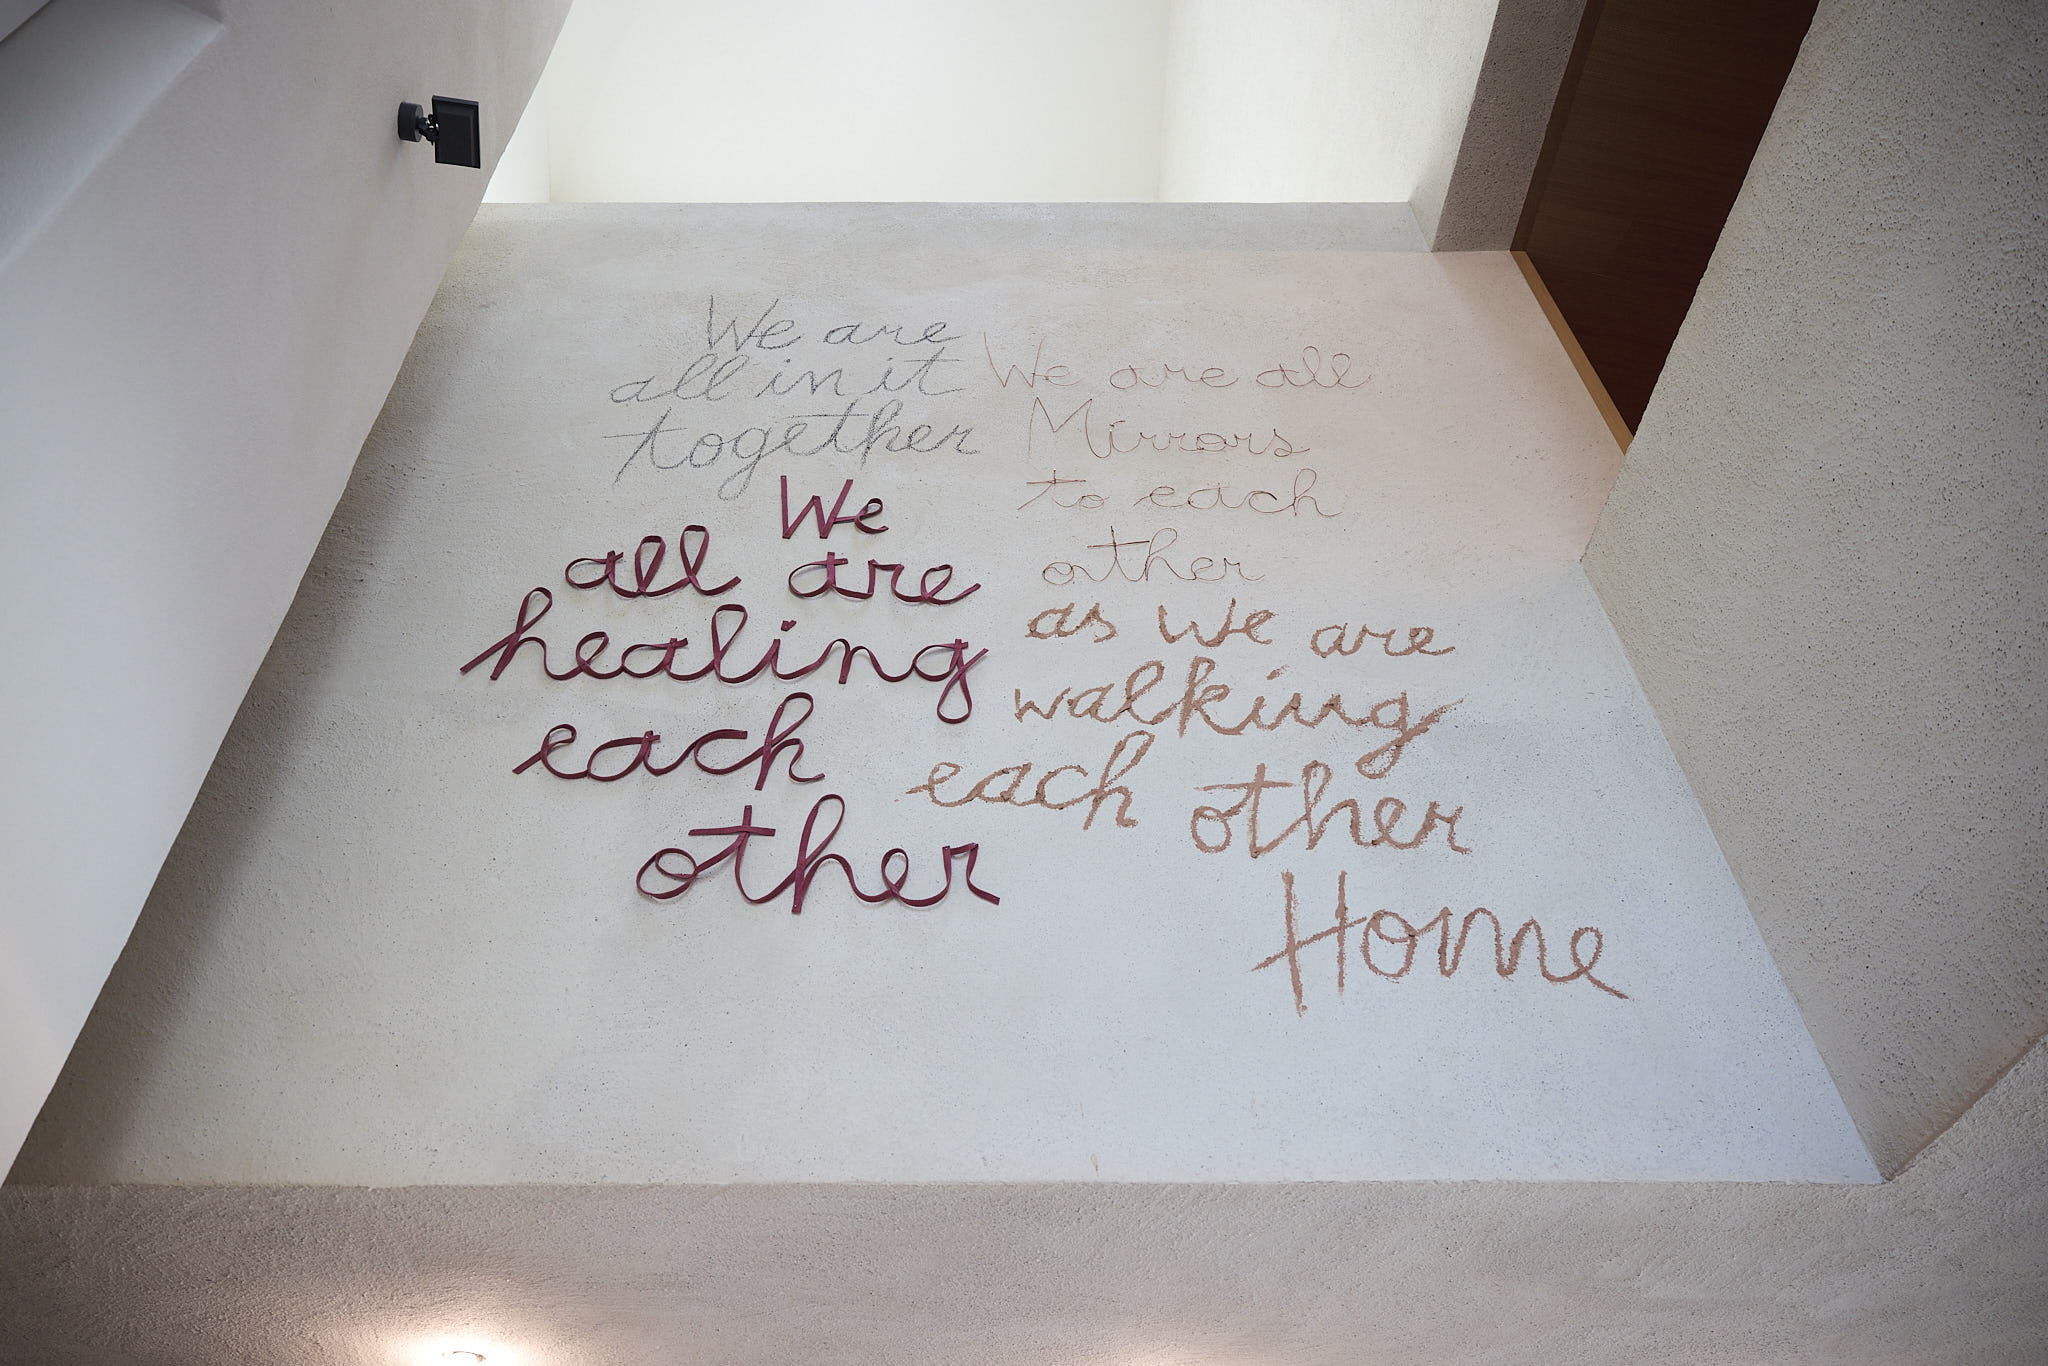 We are
all in it
together
We
all are
healing
each
other
We are all
Mirrors
to each
other
as We are
walking
each other
Home